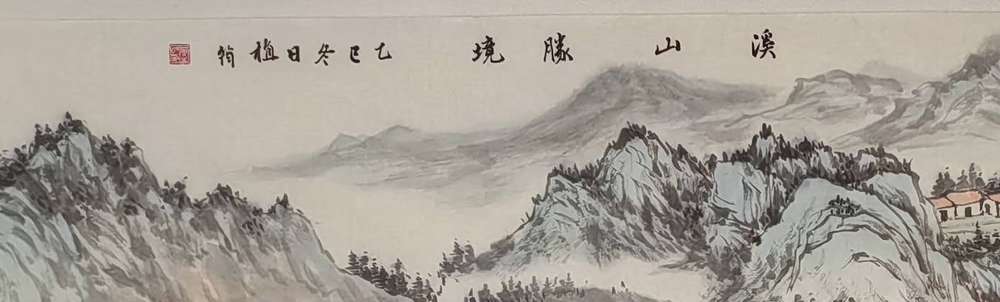 溪山勝境 乙巳冬日植